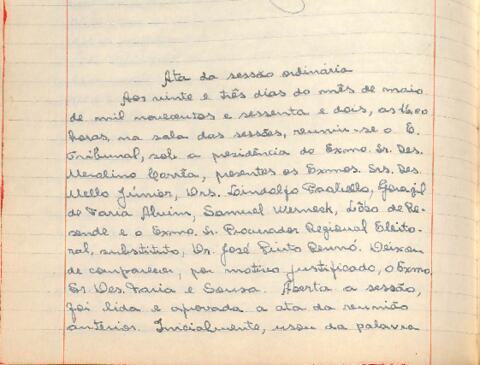 Ata da sessão ordinária
Aos vinte e três dias do mês de maio
de mil novecentos e sessenta e dois, às 16,00
horas, na sala das sessões, reuniu-se o E.
Tribunal, sob a presidência do Exmo. Sr. Des.
Merolino Corrêa, presentes os Exmos. Srs. Des.
Mello Júnior, Drs. Lindolfo Paoliello,
de Faria Alvim, Samuel Werneck, Lôbo de Re-
sende e o Exmo. Sr. Procurador Regional Eleito-
ral, substituto, Dr. José Pinto Rennó. Deixou
de comparecer, por motivo justificado, o Exmo.
Sr. Des. Faria e Sousa. Aberta a sessão,
foi lida e aprovada a ata da reunião
anterior. Inicialmente, usou da palavra